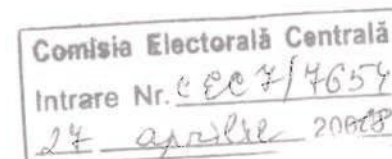 Comisia Electorală Centrală
Intrare Nr. CEC7/7654
27 aprilie 20